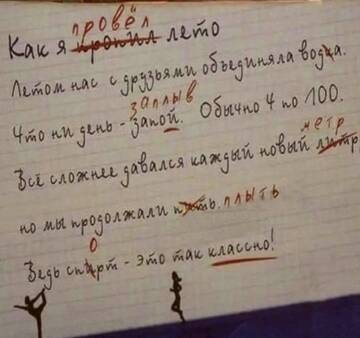 провёл
Как я пропил лето
Летом нас с друзьями объединяла водка.
заплыв
Что ни день - запой. Обычно 4 по 100.
метр
Всё сложнее давался каждый новый литр
но мы продолжали пить. плыть
о
Ведь спирт - это так классно!